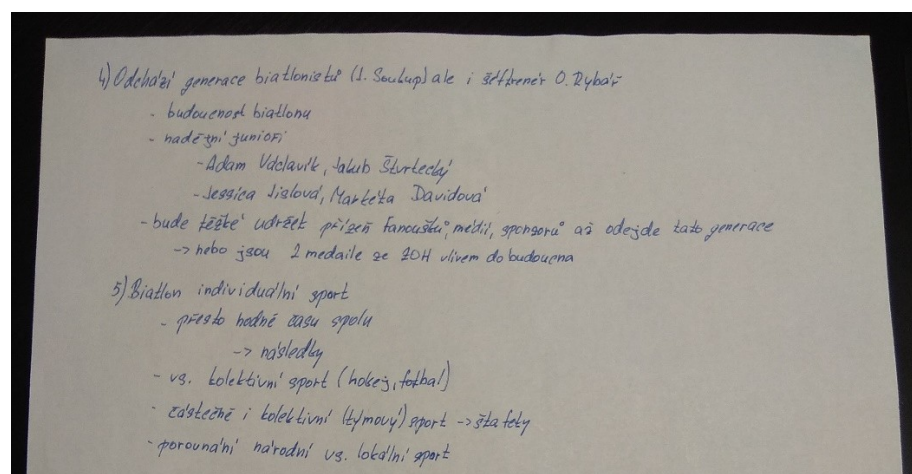 4) Odchází generace biatlonistů (J. Soukup) ale i šéftrenér O. Rybář
- budoucnost biatlonu
- nadějní junioři
- Adam Václavík, Jakub Štvrtecký
- Jessica Jislová, Markéta Davidová
- bude těžké udržet přízeň fanoušků, médií, sponzorů až odejde tato generace
-> nebo jsou 2 medaile ze ZOH vlivem do budoucna
5) Biatlon individuální sport
- přesto hodně času spolu
-> následky
- vs. kolektivní sport (hokej, fotbal)
- částečně i kolektivní (týmový) sport -> štafety
- porovnání národní vs. lokální sport